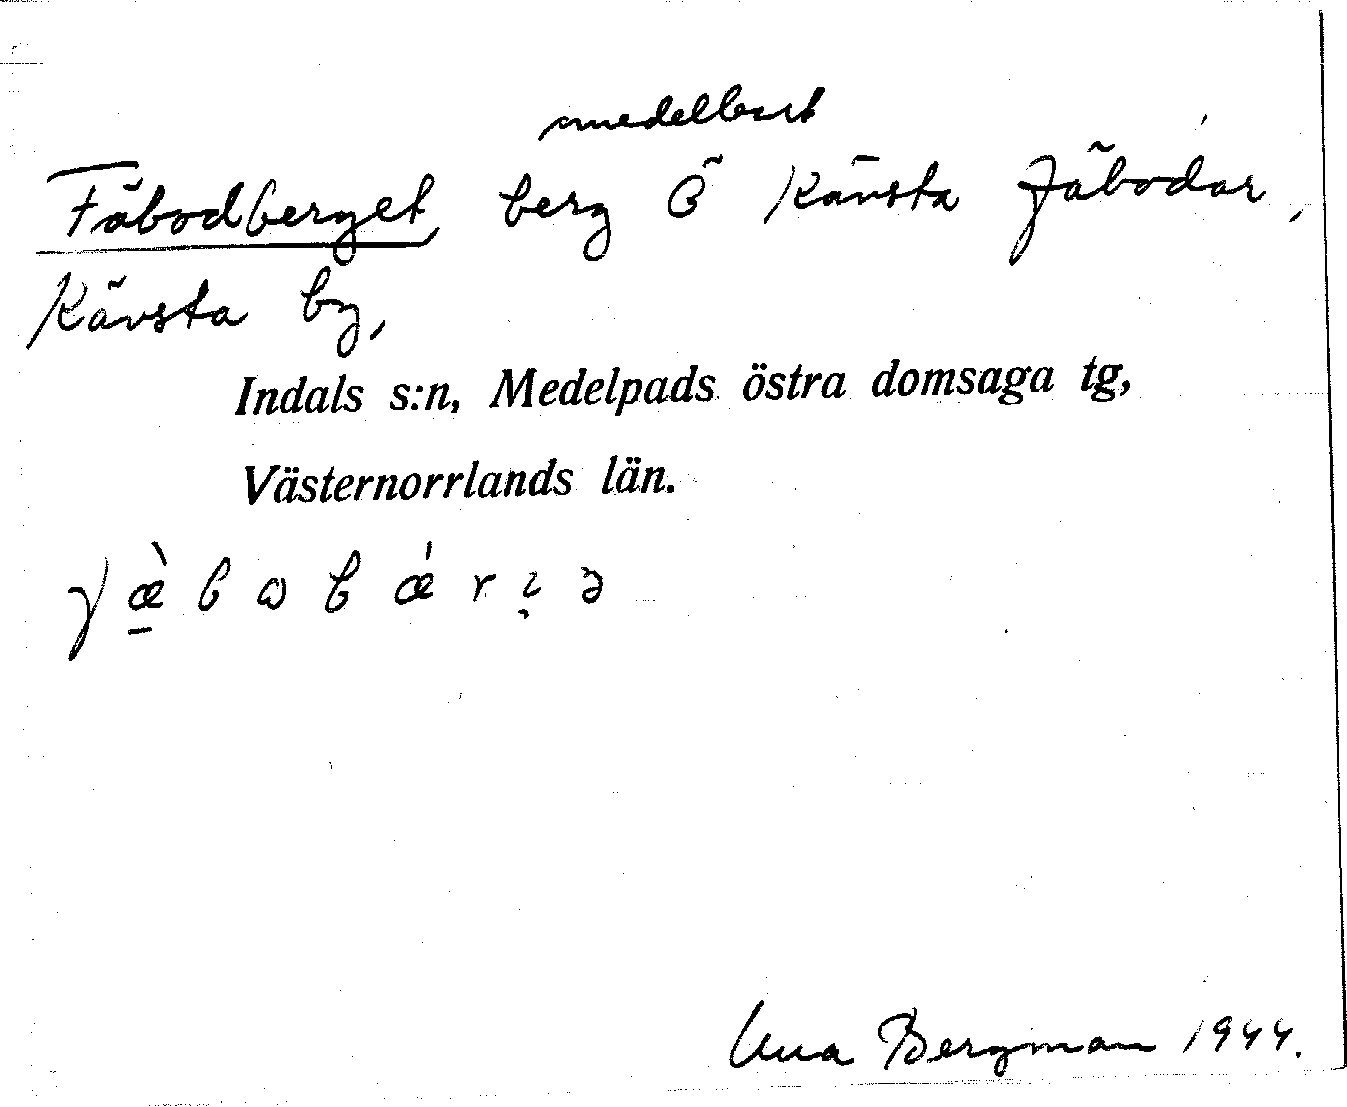 medelbart
Fäbodberget, berg Ö Kävsta fäbodar,
Kävsta by,
Indals s:n, Medelpads östra domsaga tg,
Västernorrlands län.
Bergman 1944.